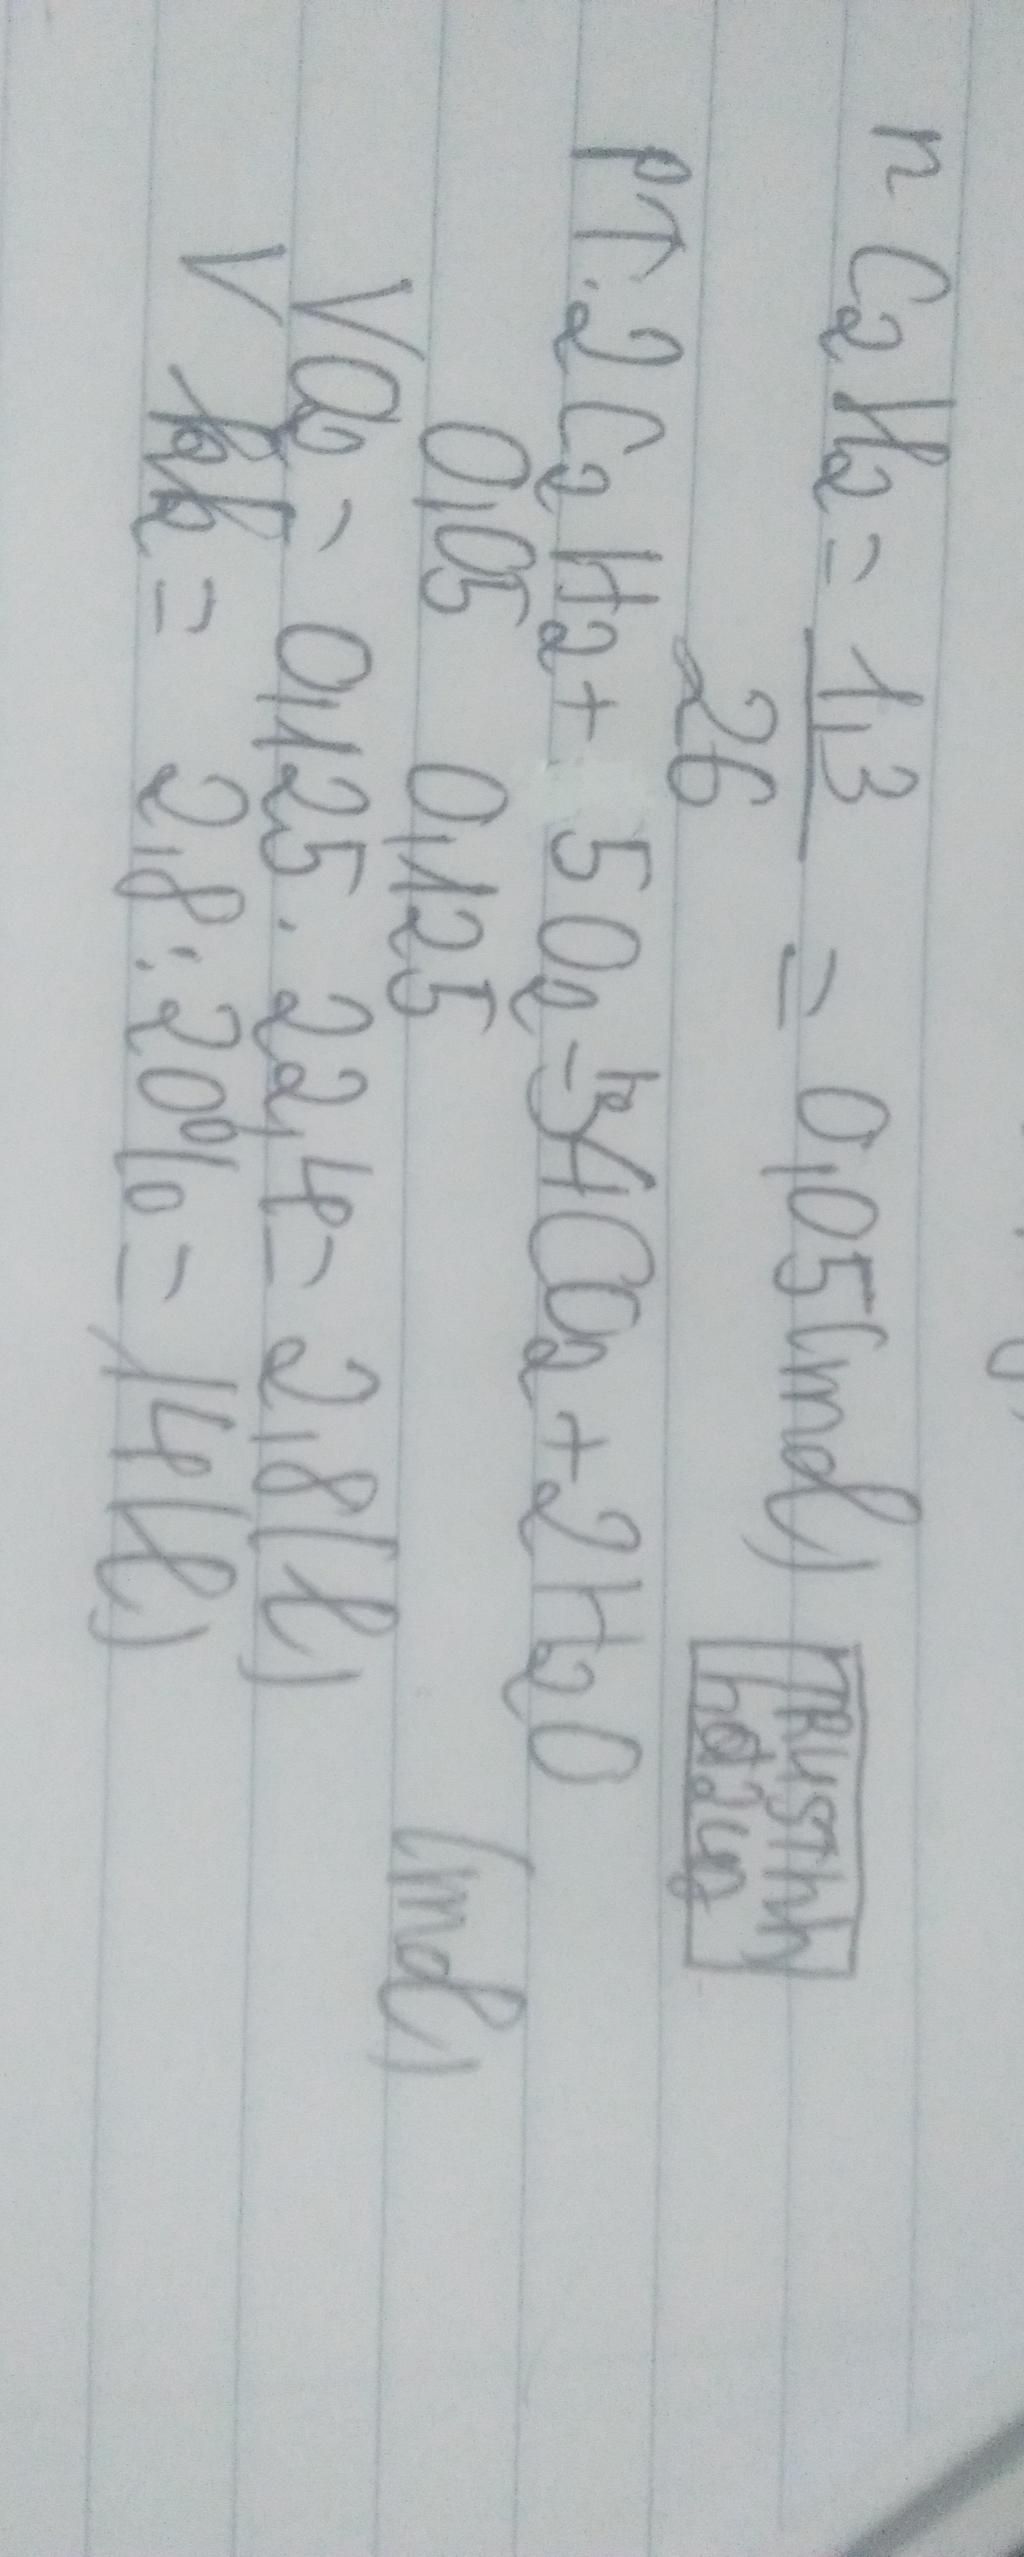 n C2H2 = 1,3 / 26 = 0,05 (mol)
PT: 2C2H2 + 5O2 -t°> 4CO2 + 2H2O
0,05 0,125 (mol)
VO2 = 0,125 . 22,4 = 2,8 (l)
V kk = 2,8 : 20% = 14 (l)